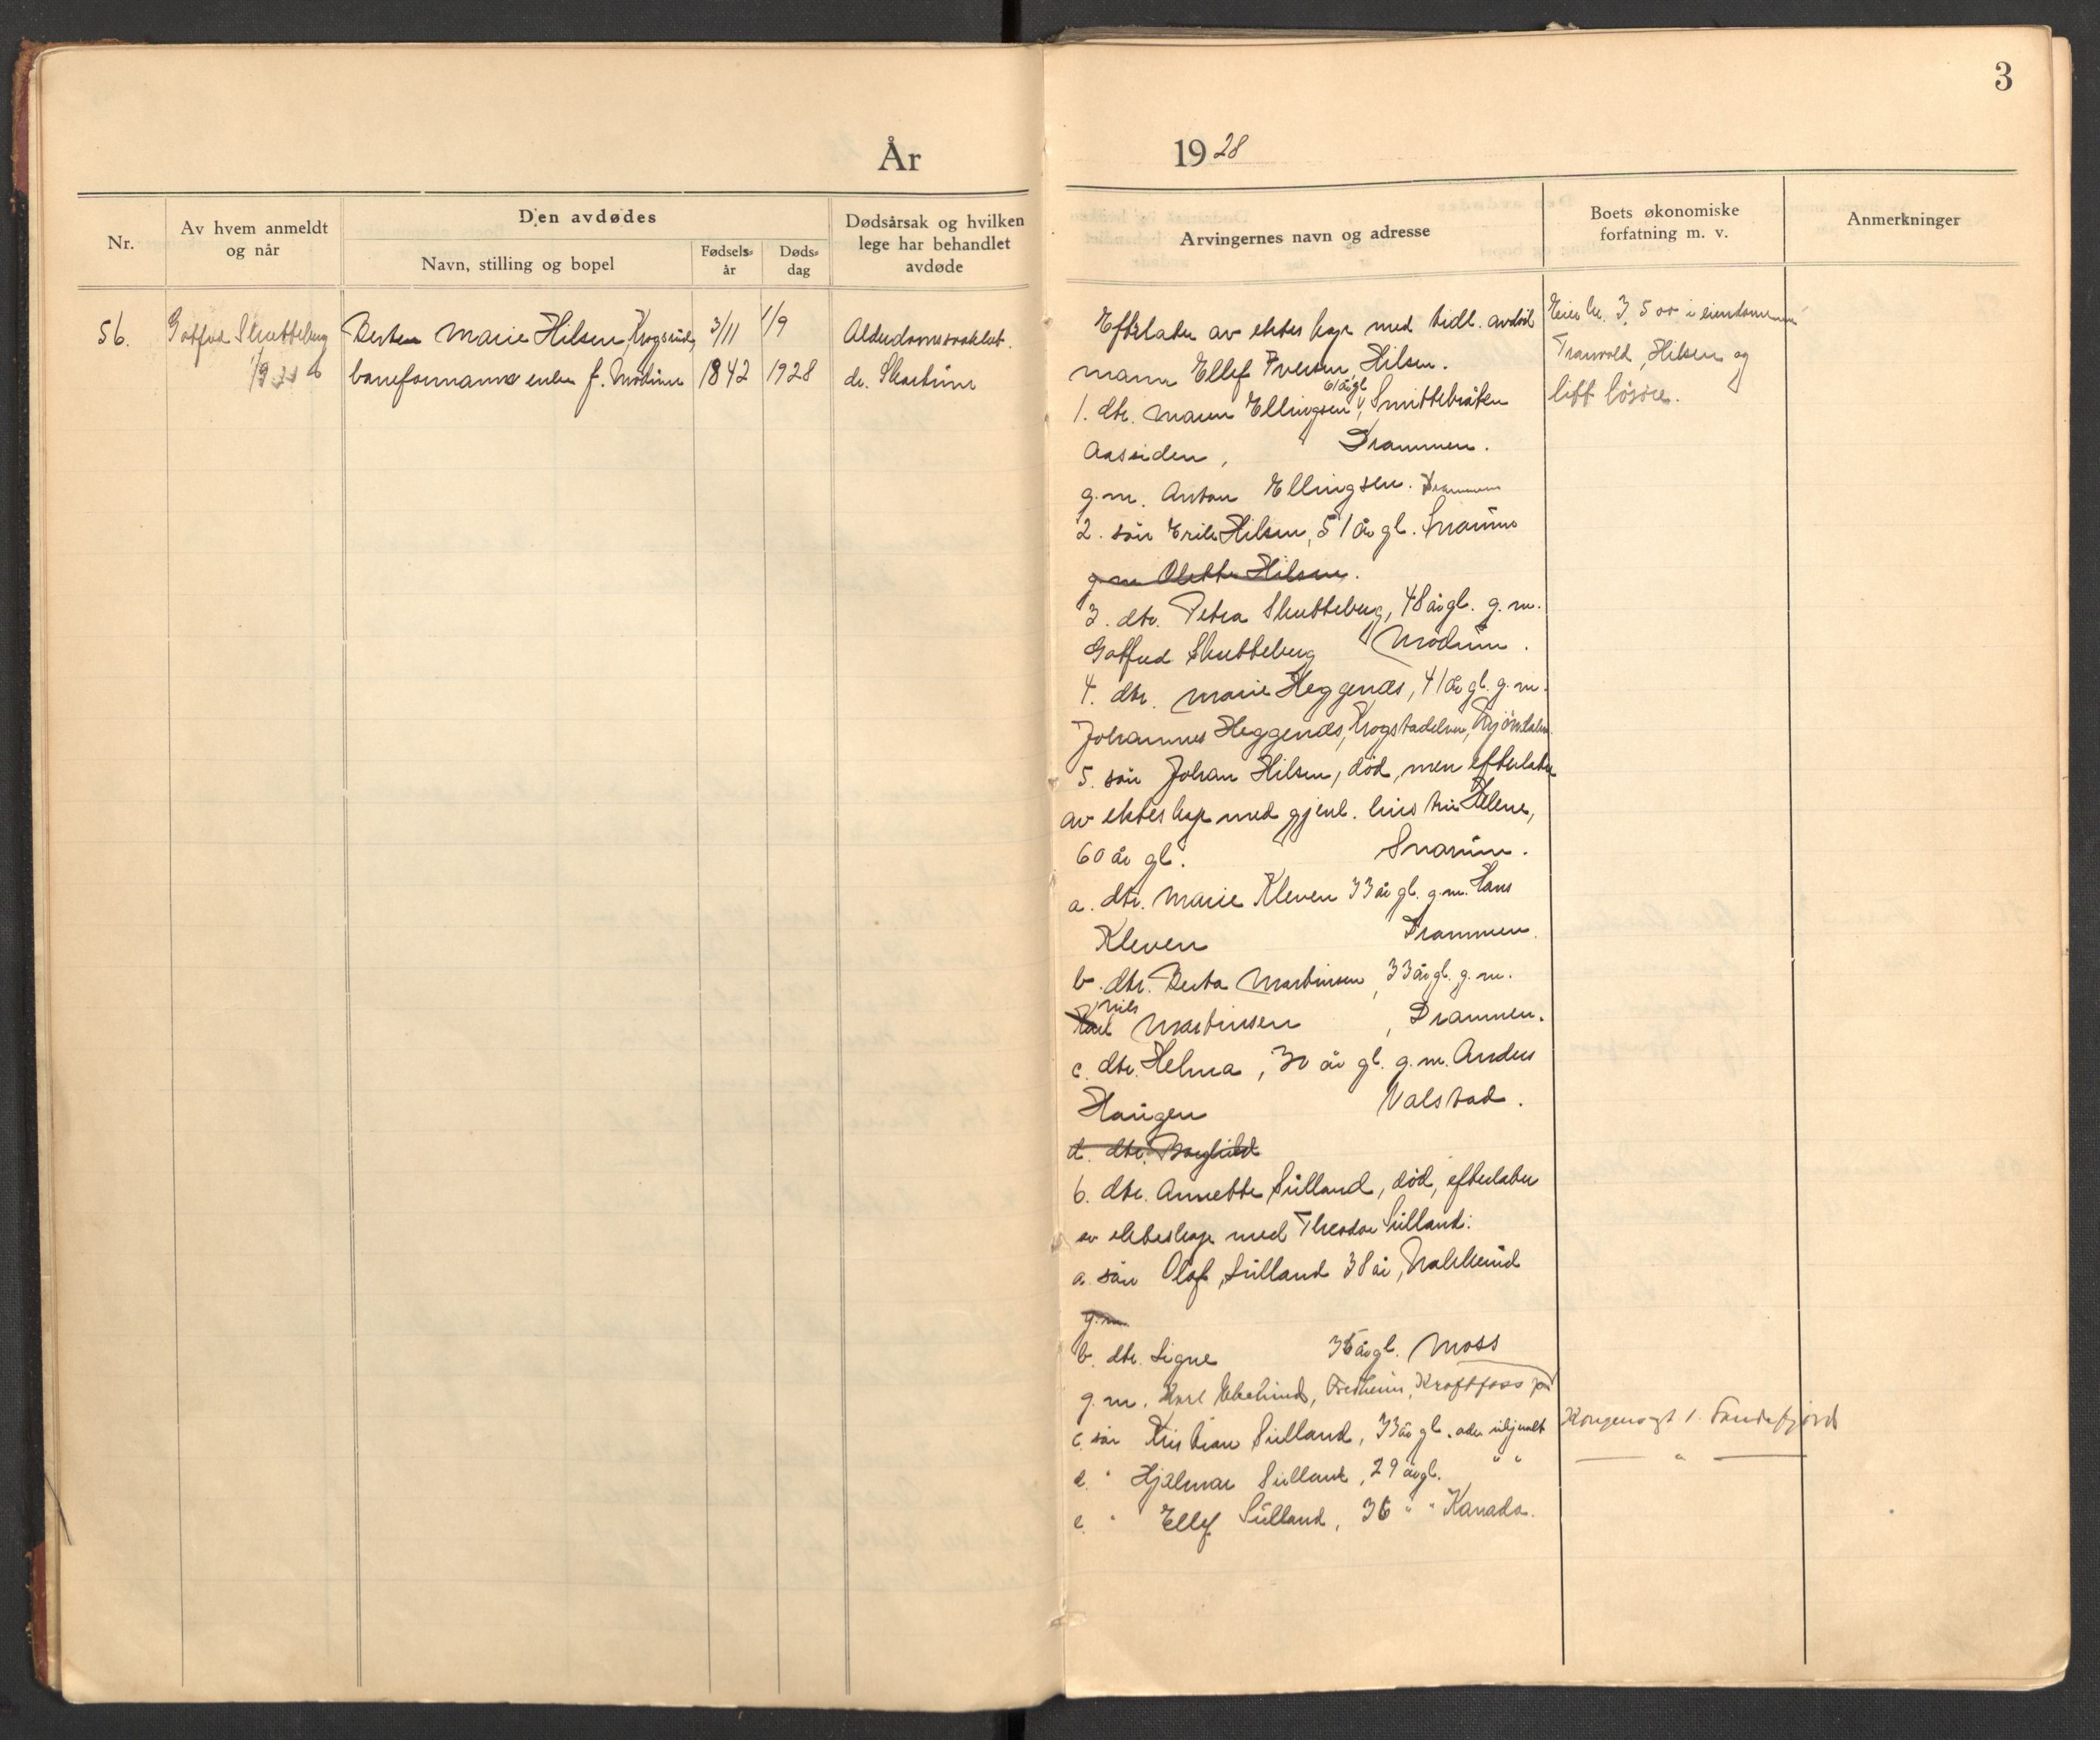 3
År 1928
Nr.
Av hvem anmeldt og når
Den avdødes
Navn, stilling og bopel
Fødsels-år
Døds-dag
Dødsårsak og hvilken lege har behandlet avdøde
Arvingernes navn og adresse
Boets økonomiske forfatning m. v.
Anmerkninger
56.
Gotfred Skutteberg
Marie Hilsen, Krogsrud,
enke f. Modum
3/11
1842
1/9
1928
Alderdomssvakhet.
dr. Skartum
Efterlater av ekteskap med tidl. avdød
mann Ellef Iversen Hilsen.
1. dtr. Maren Ellingsen, 61 år gl. Smittebråten
Aassiden, Drammen.
g.m. Anton Ellingsen. Drammen
2. søn Erik Hilsen, 51 år gl. Snarum
g.m. Olette Hilsen.
3. dtr. Petra Skutteberg, 48 år gl. g.m.
Gotfred Skutteberg Modum.
4. dtr. Marie Heggenæs, 41 år gl. g.m.
Johannes Heggenæs, Krogstadelven, Mjøndalen.
5. søn Johan Hilsen, død, men efterlater
av ekteskap med gjenl. hustru Helene,
60 år gl. Snarum.
a. dtr. Marie Kleven 33 år gl. g.m. Hans
Kleven Drammen.
b. dtr. Berta Martinsen, 33 år gl. g.m.
Nils Martinsen, Drammen.
c. dtr. Helma, 30 år gl. g.m. Anders
Haugen Valstad.
d. dtr. Borghild
6. dtr. Annette Sulland, død, efterlater
av ekteskap med Theodor Sulland:
a. søn Olaf Sulland 38 år, Nakkerud
g.m.
b. dtr. Signe 35 år gl. Moss
g.m. Karl Fredheim, Kraftfoss
c. søn Kristian Sulland, 33 år gl. adr. ubjent
d. " Hjalmar Sulland, 29 år gl. " "
e. " Ellef Sulland, 36 " " Kanada.
Eier kr. 3,500 i eiendommen
Tranvold, Hilsen og
litt løsøre.
Kongensgt 1. Sandefjord
— " —